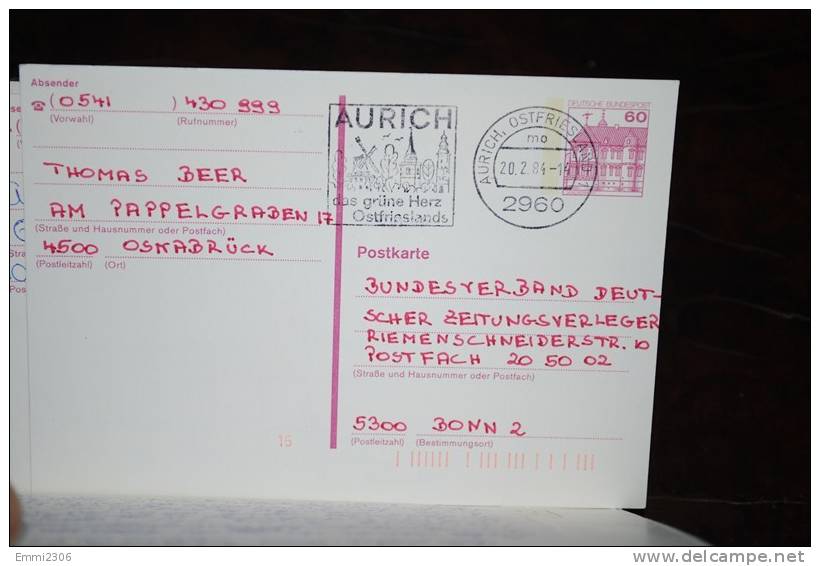 Absender
☎ (0541 ) 430 999
(Vorwahl) (Rufnummer)
THOMAS BEER
AM PAPPELGRABEN 17
(Straße und Hausnummer oder Postfach)
4500 OSNABRÜCK
(Postleitzahl) (Ort)
15
AURICH
das grüne Herz
Ostfrieslands
AURICH, OSTFRIESLAND 1
mo
20.2.84-14
2960
DEUTSCHE BUNDESPOST
60
Postkarte
BUNDESVERBAND DEUT-
SCHER ZEITUNGSVERLEGER
RIEMENSCHNEIDERSTR. 10
POSTFACH 20 50 02
(Straße und Hausnummer oder Postfach)
5300 BONN 2
(Postleitzahl) (Bestimmungsort)
Emmi2306
delcampe.net